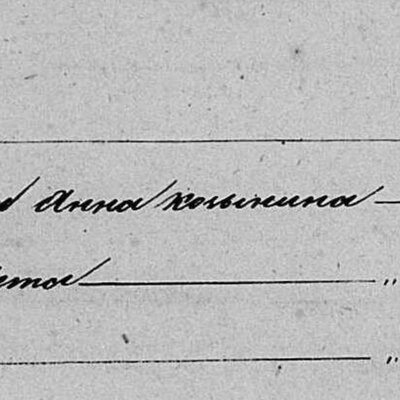 Анна Козынина — 
ета — "
"